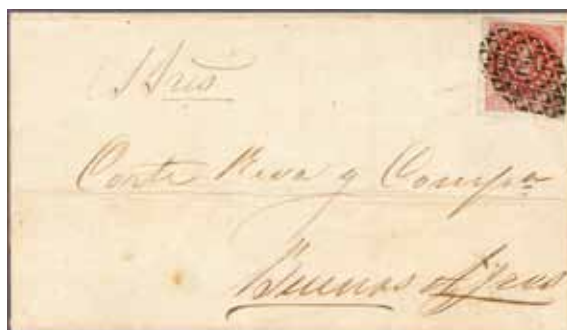 SSres
Corte Riva y Compa
Buenos Ayres